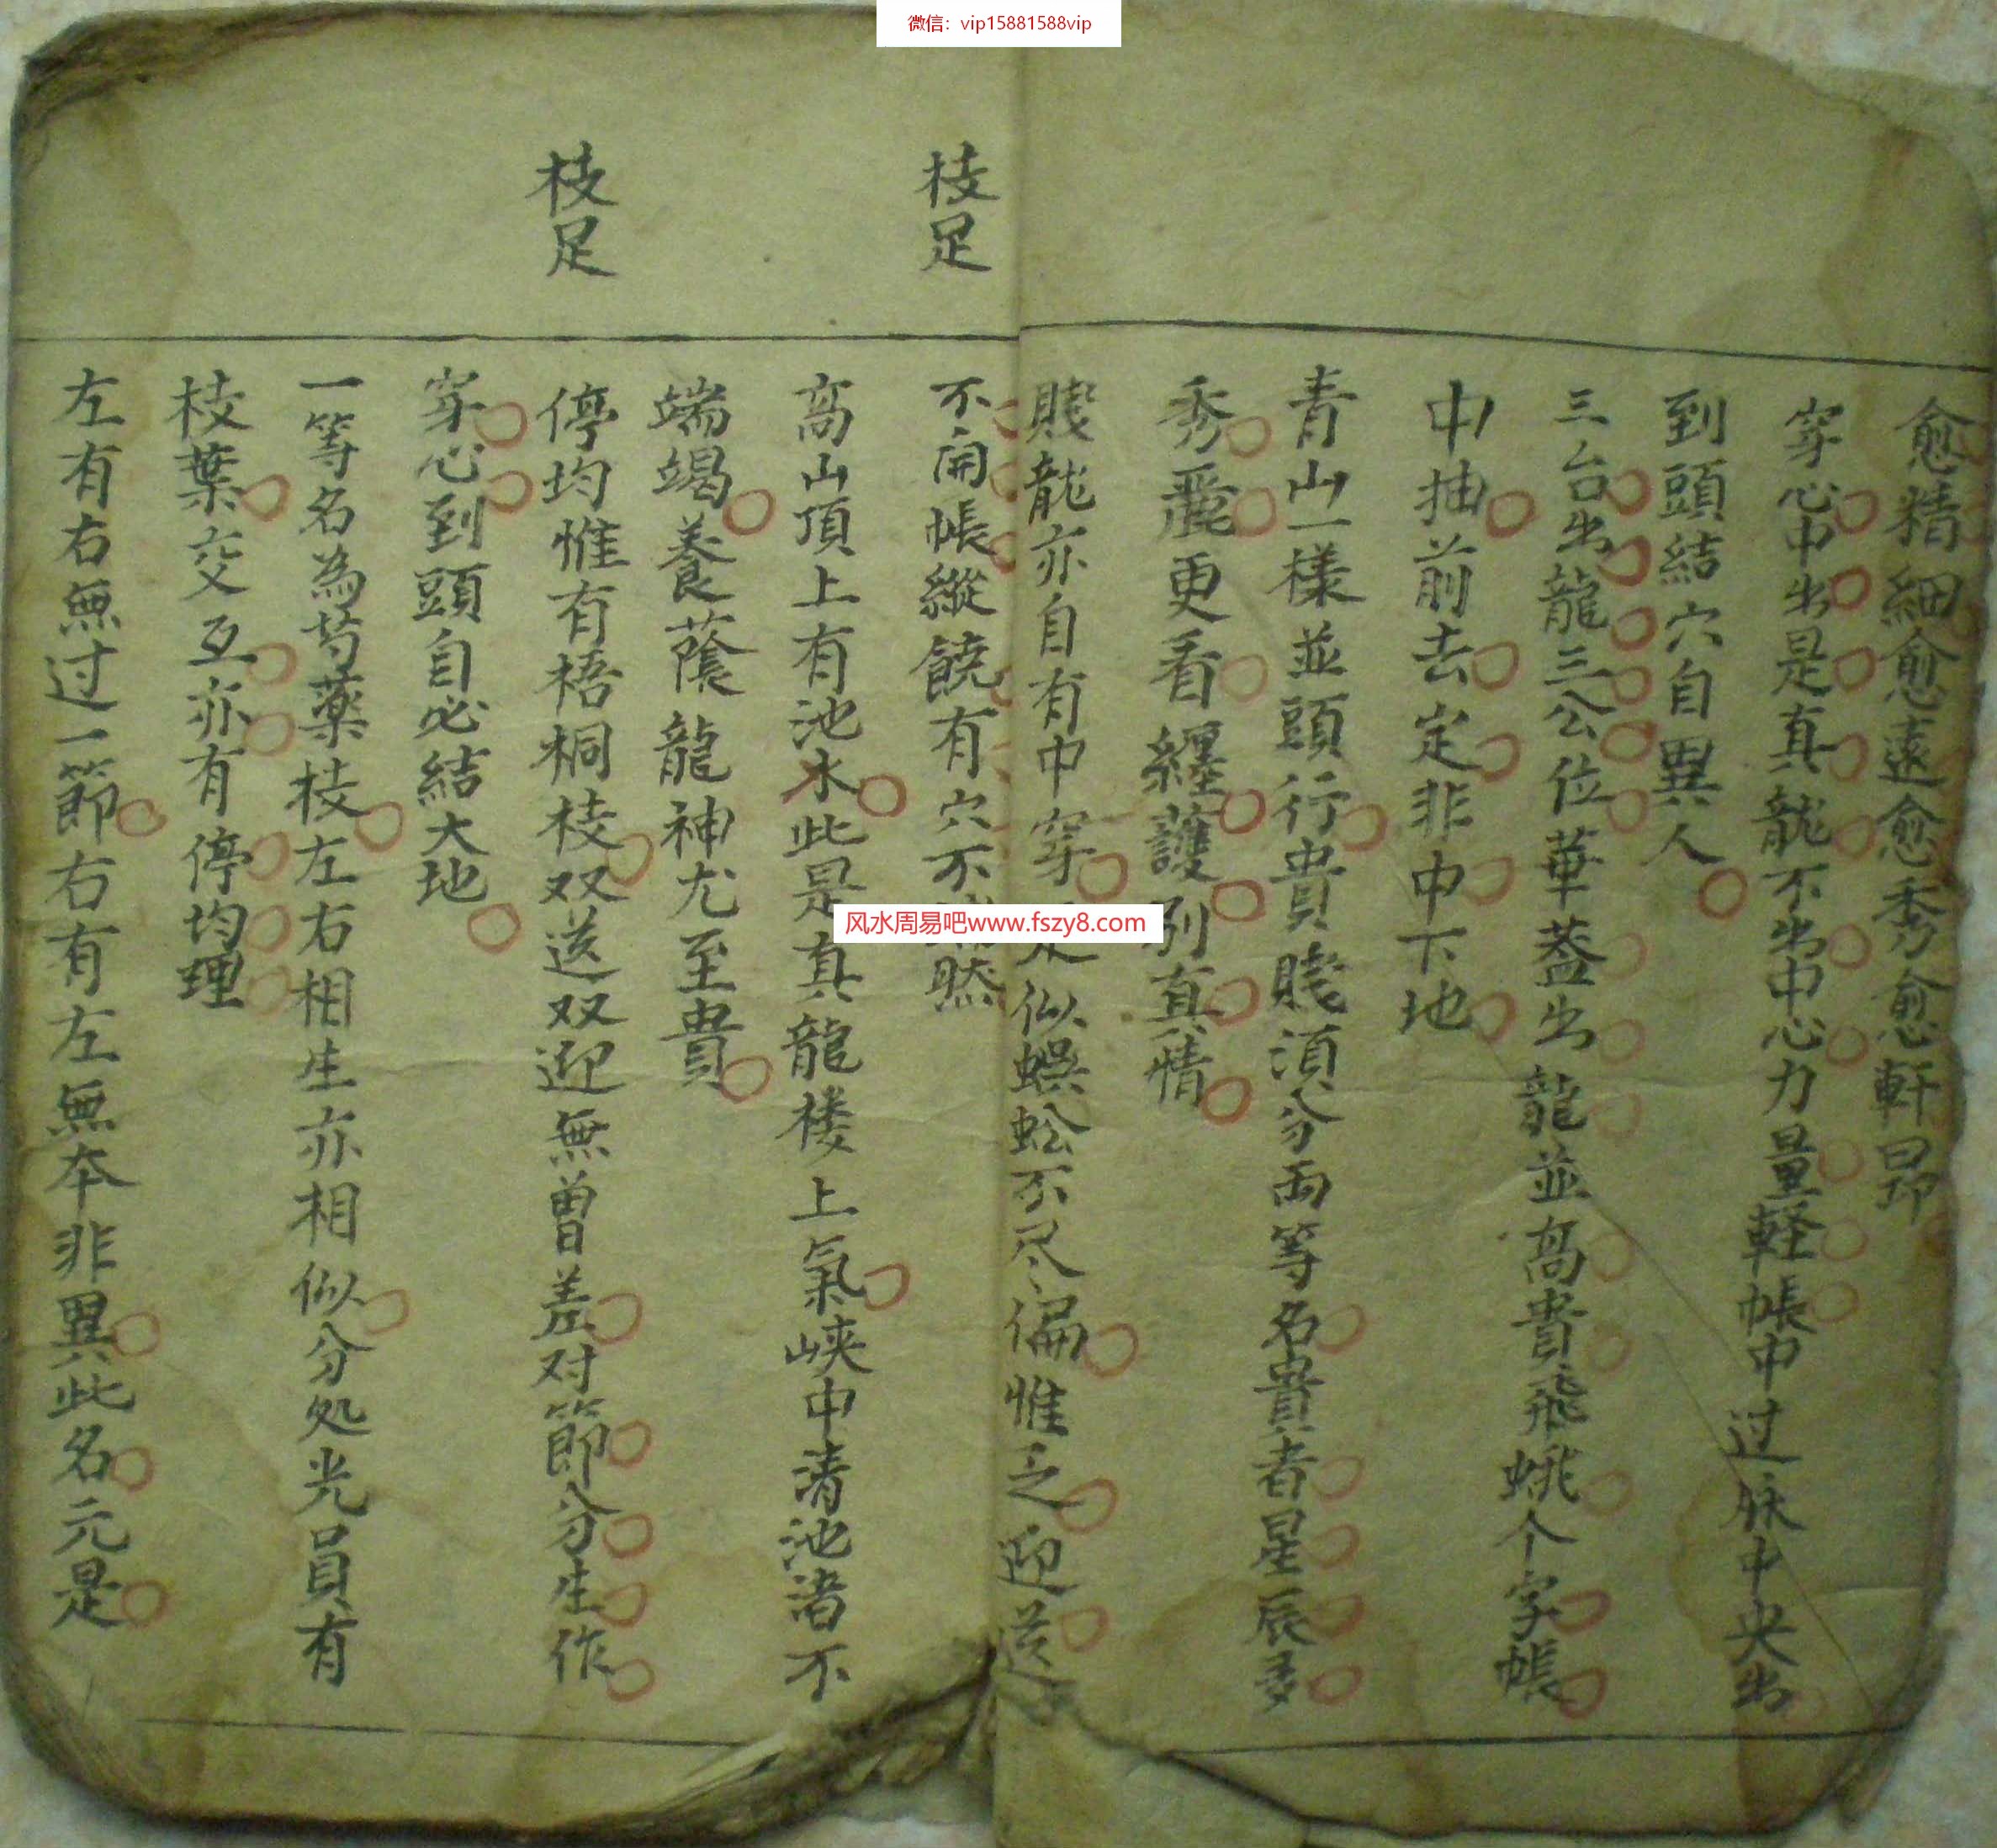 微信：vip15881588vip
愈精細愈遠愈秀愈軒昻
穿心中出是真龍不出中心力量軽帳中过脉中央出
到頭結穴自異人
三台出龍三公位華蓋出龍並高貴飛蛾个字帳
中抽前去定非中下地
青山一樣並頭行貴賤須分両等名貴者星辰多
秀麗更看纏護别真情
賤龍亦自有中穿似蜈蚣不尽偏惟乏迎送
枝足
不開帳縱饒有穴不然
高山頂上有池水此是真龍楼上氣峡中清池渚不
端竭養蔭龍神尤至貴
枝足
停均惟有梧桐枝双送双迎無曾差对節分生作
穿心到頭自必結大地
一等名為芍藥枝左右相生亦相似分処光員有
枝葉交互亦有停均理
左有右無过一節右有左無本非異此名元是
风水周易吧www.fszy8.com